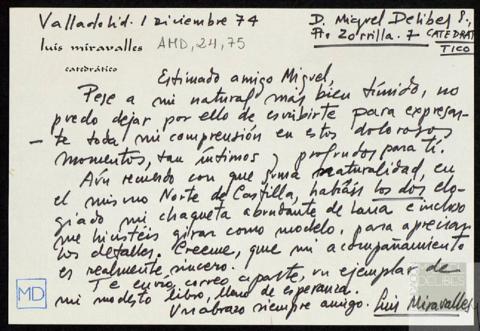 Valladolid. 1 Diciembre 74
D. Miguel Delibes S.,
Pº Zorrilla. 7 CATEDRÁ
TICO
luis miravalles
AMD, 24, 75
catedrático
Estimado amigo Miguel,
Pese a mi natural más bien tímido, no
puedo dejar por ello de escribirte para expresar-
te toda mi comprensión en estos dolorosos
momentos, tan íntimos y profundos para ti.
Aún recuerdo con que suma naturalidad, en
el mismo Norte de Castilla, habíais los dos elo-
giado mi chaqueta abundante de lana e incluso
me hicisteis girar como modelo, para apreciar
los detalles. Creeme, que mi acompañamiento
es realmente sincero.
Te envío, correo aparte, un ejemplar de
mi modesto libro, lleno de esperanza.
Un abrazo siempre amigo. Luis Miravalles
MD
DELIBES